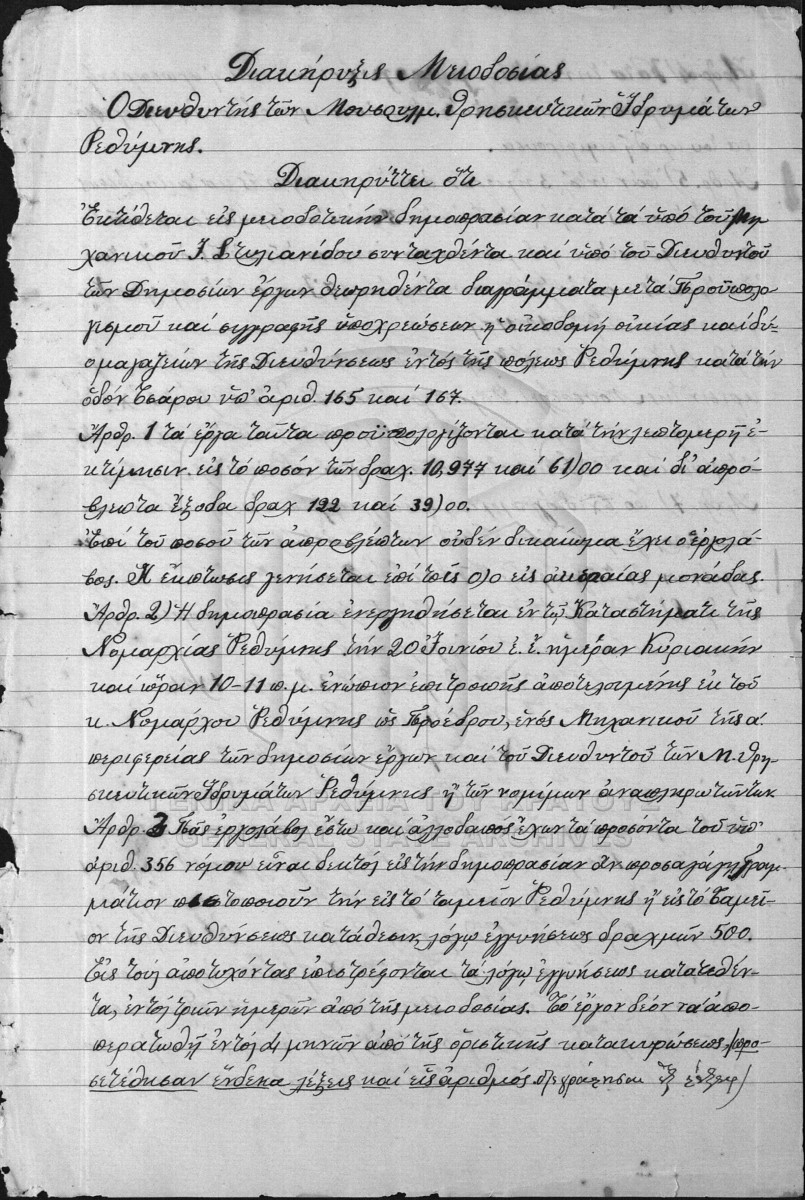 Διακήρυξις Μειοδοσίας
Ὁ Διευθυντής τῶν Μουσουλμ. Θρησκευτικῶν Ἱδρυμάτων
Ρεθύμνης.
Διακηρύττει ὅτι
Ἐκτίθεται εἰς μειοδοτικήν δημοπρασίαν κατά τά ὑπό τοῦ μη
χανικοῦ Ι. Στυλιανίδου συνταχθέντα καί ὑπό τοῦ Διευθυντοῦ
τῶν Δημοσίων ἔργων θεωρηθέντα διαγράμματα μετά Προϋπολο
γισμοῦ καί συγγραφῆς ὑποχρεώσεων ἡ οἰκοδομή οἰκίας καί δύ-
ο μαγαζείων τῆς Διευθύνσεως ἐντός τῆς πόλεως Ρεθύμνης κατά τήν
ὁδόν Τσάρου ὑπ' ἀριθ. 165 καί 167.
Ἄρθρ. 1 τά ἔργα ταῦτα προϋπολογίζονται κατά τήν λεπτομερῆ ἐ-
κτίμησιν εἰς τό ποσόν τῶν δραχ. 10,977 καί 61)00 καί δι' ἀπρό-
βλεπτα ἔξοδα δραχ 122 καί 39)00.
Ἐπί τοῦ ποσοῦ τῶν ἀπροβλέπτων οὐδέν δικαίωμα ἔχει ὁ ἐργολά-
βος. Ἡ ἔκπτωσις γενήσεται ἐπί τοῖς ο)ο εἰς ἀκεραίας μονάδας.
Ἄρθρ. 2) Ἡ δημοπρασία ἐνεργηθήσεται ἐν τῷ Καταστήματι τῆς
Νομαρχίας Ρεθύμνης τήν 20 Ἰουνίου ἐ. ἔ. ἡμέραν Κυριακήν
καί ὥραν 10-11 π.μ. ἐνώπιον ἐπιτροπῆς ἀποτελουμένης ἐκ τοῦ
κ. Νομάρχου Ρεθύμνης ὡς Προέδρου, ἑνός Μηχανικοῦ τῆς α΄.
περιφερείας τῶν δημοσίων ἔργων καί τοῦ Διευθυντοῦ τῶν Μ. Θρη
σκευτικῶν Ἱδρυμάτων Ρεθύμνης ἤ τῶν νομίμων ἀναπληρωτῶν των.
ΓΕΝΙΚΑ ΑΡΧΕΙΑ ΤΟΥ ΚΡΑΤΟΥΣ
Ἄρθρ. 3 Πᾶς ἐργολάβος ἔστω καί ἀλλοδαπός ἔχων τά προσόντα τοῦ ὑπ'
GENERAL STATE ARCHIVES
ἀριθ. 356 νόμου εἶναι δεκτός εἰς τήν δημοπρασίαν ἄν προσαγάγῃ γραμ-
μάτιον πιστοποιοῦν τήν εἰς τό ταμεῖον Ρεθύμνης ἤ εἰς τό Ταμεῖ-
ον τῆς Διευθύνσεως κατάθεσιν, λόγῳ ἐγγυήσεως δραχμῶν 500.
Εἰς τούς ἀποτυχόντας ἐπιστρέφονται τά λόγῳ ἐγγυήσεως κατατεθέν-
τα, ἐντός τριῶν ἡμερῶν ἀπό τῆς μειοδοσίας. Τό ἔργον δέον νά ἀπο-
περατωθῇ ἐντός 4 μηνῶν ἀπό τῆς ὁριστικῆς κατακυρώσεως, (προ
σετέθησαν ἕνδεκα λέξεις καί εἷς ἀριθμός,